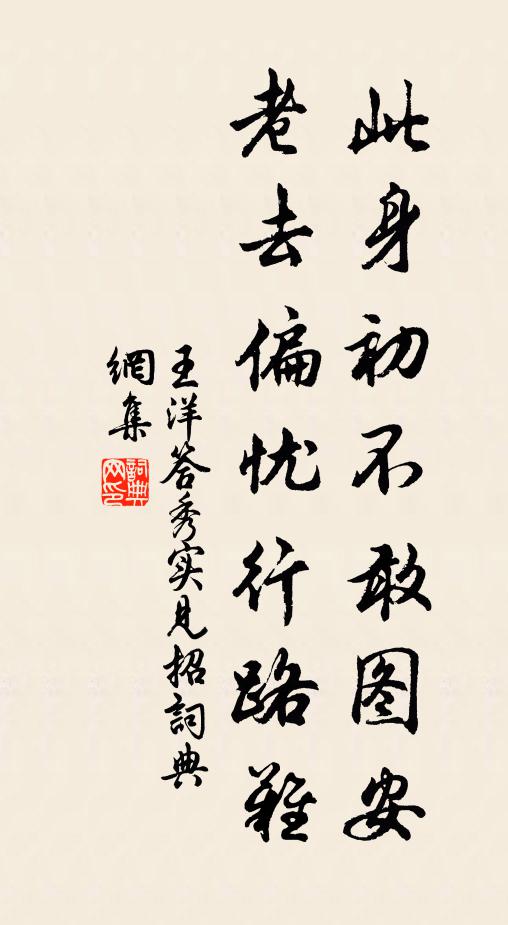 此身初不敢图安
老去偏忧行路难
王洋答秀实见招詞典
網集
詞典
网印